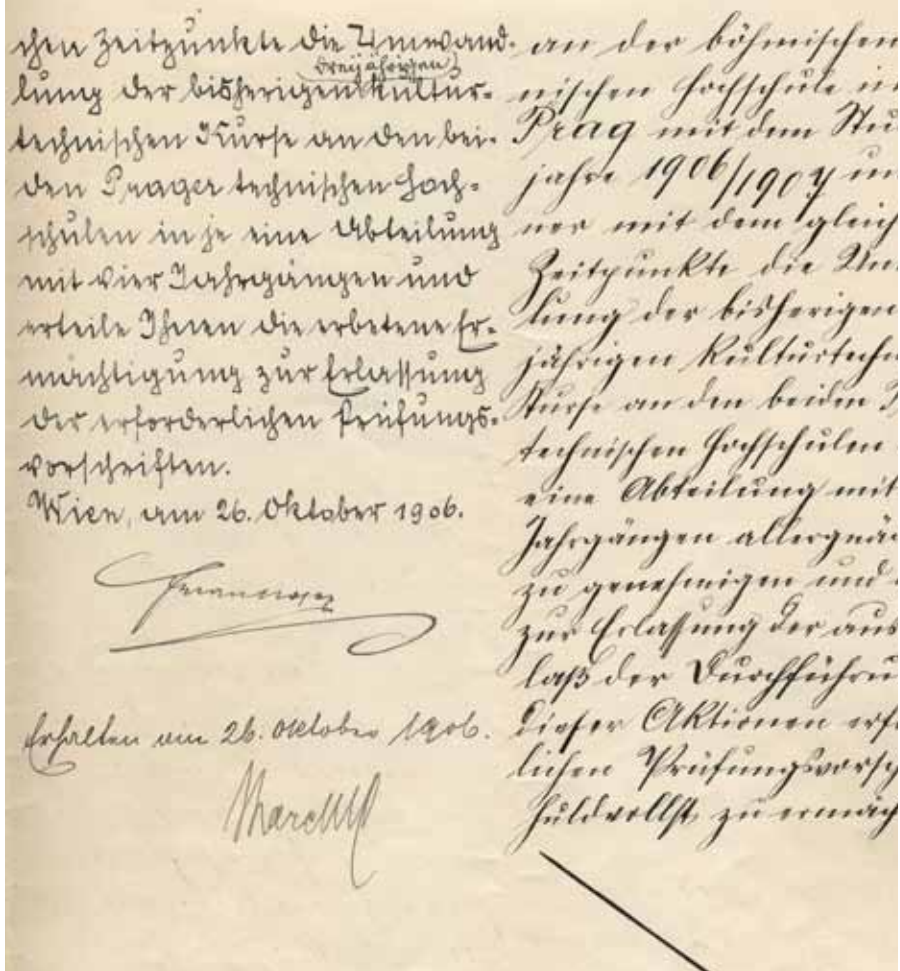 chen Zeitpunkte die Umwand-
(dreijährigen)
lung der bisherigen Kultur-
technischen Kurse an den bei-
den Prager technischen Hoch-
schulen in je eine Abteilung
mit vier Jahrgängen und
erteile Ihnen die erbetene Er-
mächtigung zur Erlassung
der erforderlichen Prüfungs-
vorschriften.
Wien, am 26. Oktober 1906.
Erhalten am 26. Oktober 1906.
Marchet
an der böhmischen
nischen Hochschule in
Prag mit dem Stu
jahre 1906/1907 un
ner mit dem gleich
Zeitpunkte die Um
lung der bisherigen
jährigen Kulturtechn
Kurse an den beiden P
technischen Hochschulen
eine Abteilung mit
Jahrgängen allergnä
zu genehmigen und
zur Erlassung der aus
laß der Durchführu
dieser Aktionen erfo
lichen Prüfungsvorsch
huldvollst zu ermäch